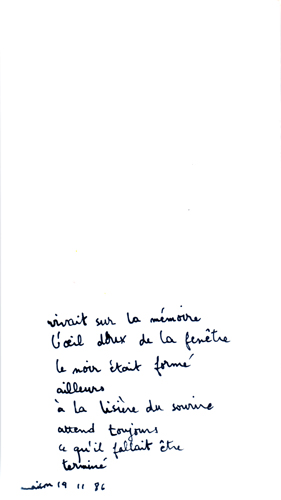 vivait sur la mémoire
l'œil doux de la fenêtre
le noir était formé
ailleurs
à la lisière du sourire
attend toujours
ce qu'il fallait être
terminé
19 11 86